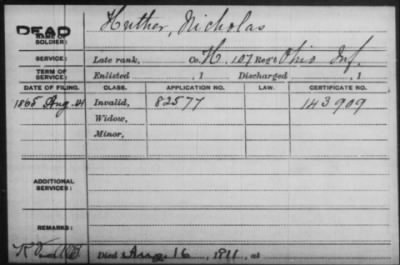 DEAD
NAME OF SOLDIER: Huther, Nicholas
SERVICE: Late rank, Co. H, 107 Reg't Ohio Inf.
TERM OF SERVICE: Enlisted , 1 Discharged , 1
DATE OF FILING. CLASS. APPLICATION NO. LAW. CERTIFICATE NO.
1865 Aug. Invalid, 82577 143909
Widow,
Minor,
ADDITIONAL SERVICES:
REMARKS:
Died Aug 16, 1911, at